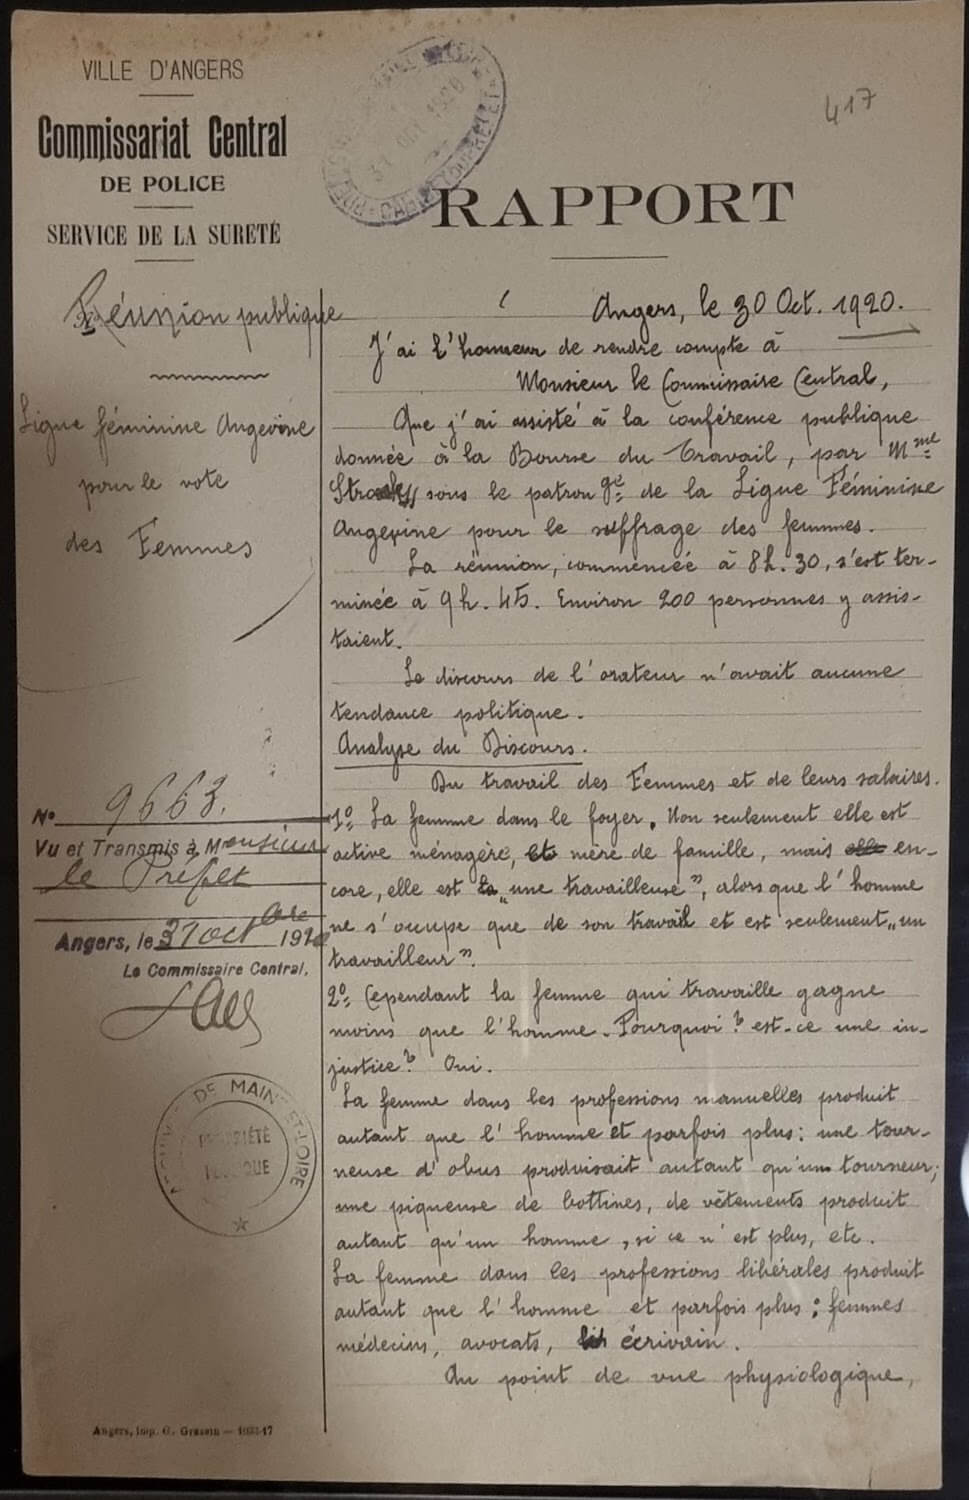 VILLE D'ANGERS
Commissariat Central
DE POLICE
SERVICE DE LA SURETÉ
Réunion publique
Ligue féminine Angevine
pour le vote
des Femmes
No 9663.
Vu et Transmis à Monsieur
le Préfet
Angers, le 31 octbre 1920
Le Commissaire Central,
DE MAINE-ET-LOIRE
PROPRIÉTÉ
PUBLIQUE
Angers, imp. G. Grassin —
417
31 OCT 1920
CABINET DU PRÉFET
RAPPORT
Angers, le 30 Oct. 1920.
J'ai l'honneur de rendre compte à
Monsieur le Commissaire Central,
Que j'ai assisté à la conférence publique
donnée à la Bourse du Travail, par Mme
sous le patronge de la Ligue Féminine
Angevine pour le suffrage des femmes.
La réunion, commencée à 8h.30, s'est ter-
minée à 9h.45. Environ 200 personnes y assis-
taient.
Le discours de l'orateur n'avait aucune
tendance politique.
Analyse du Discours.
Du travail des Femmes et de leurs salaires.
1o La femme dans le foyer. Non seulement elle est
active ménagère, et mère de famille, mais elle en-
core, elle est la „une travailleuse", alors que l'homme
ne s'occupe que de son travail et est seulement „un
travailleur".
2o Cependant la femme qui travaille gagne
moins que l'homme. Pourquoi? est-ce une in-
justice? Oui.
La femme dans les professions manuelles produit
autant que l'homme et parfois plus: une tour-
neuse d'obus produisait autant qu'un tourneur;
une piqueuse de bottines, de vêtements produit
autant qu'un homme, si ce n'est plus, etc.
La femme dans les professions libérales produit
autant que l'homme et parfois plus: femmes
médecins, avocats, écrivain.
Au point de vue physiologique,